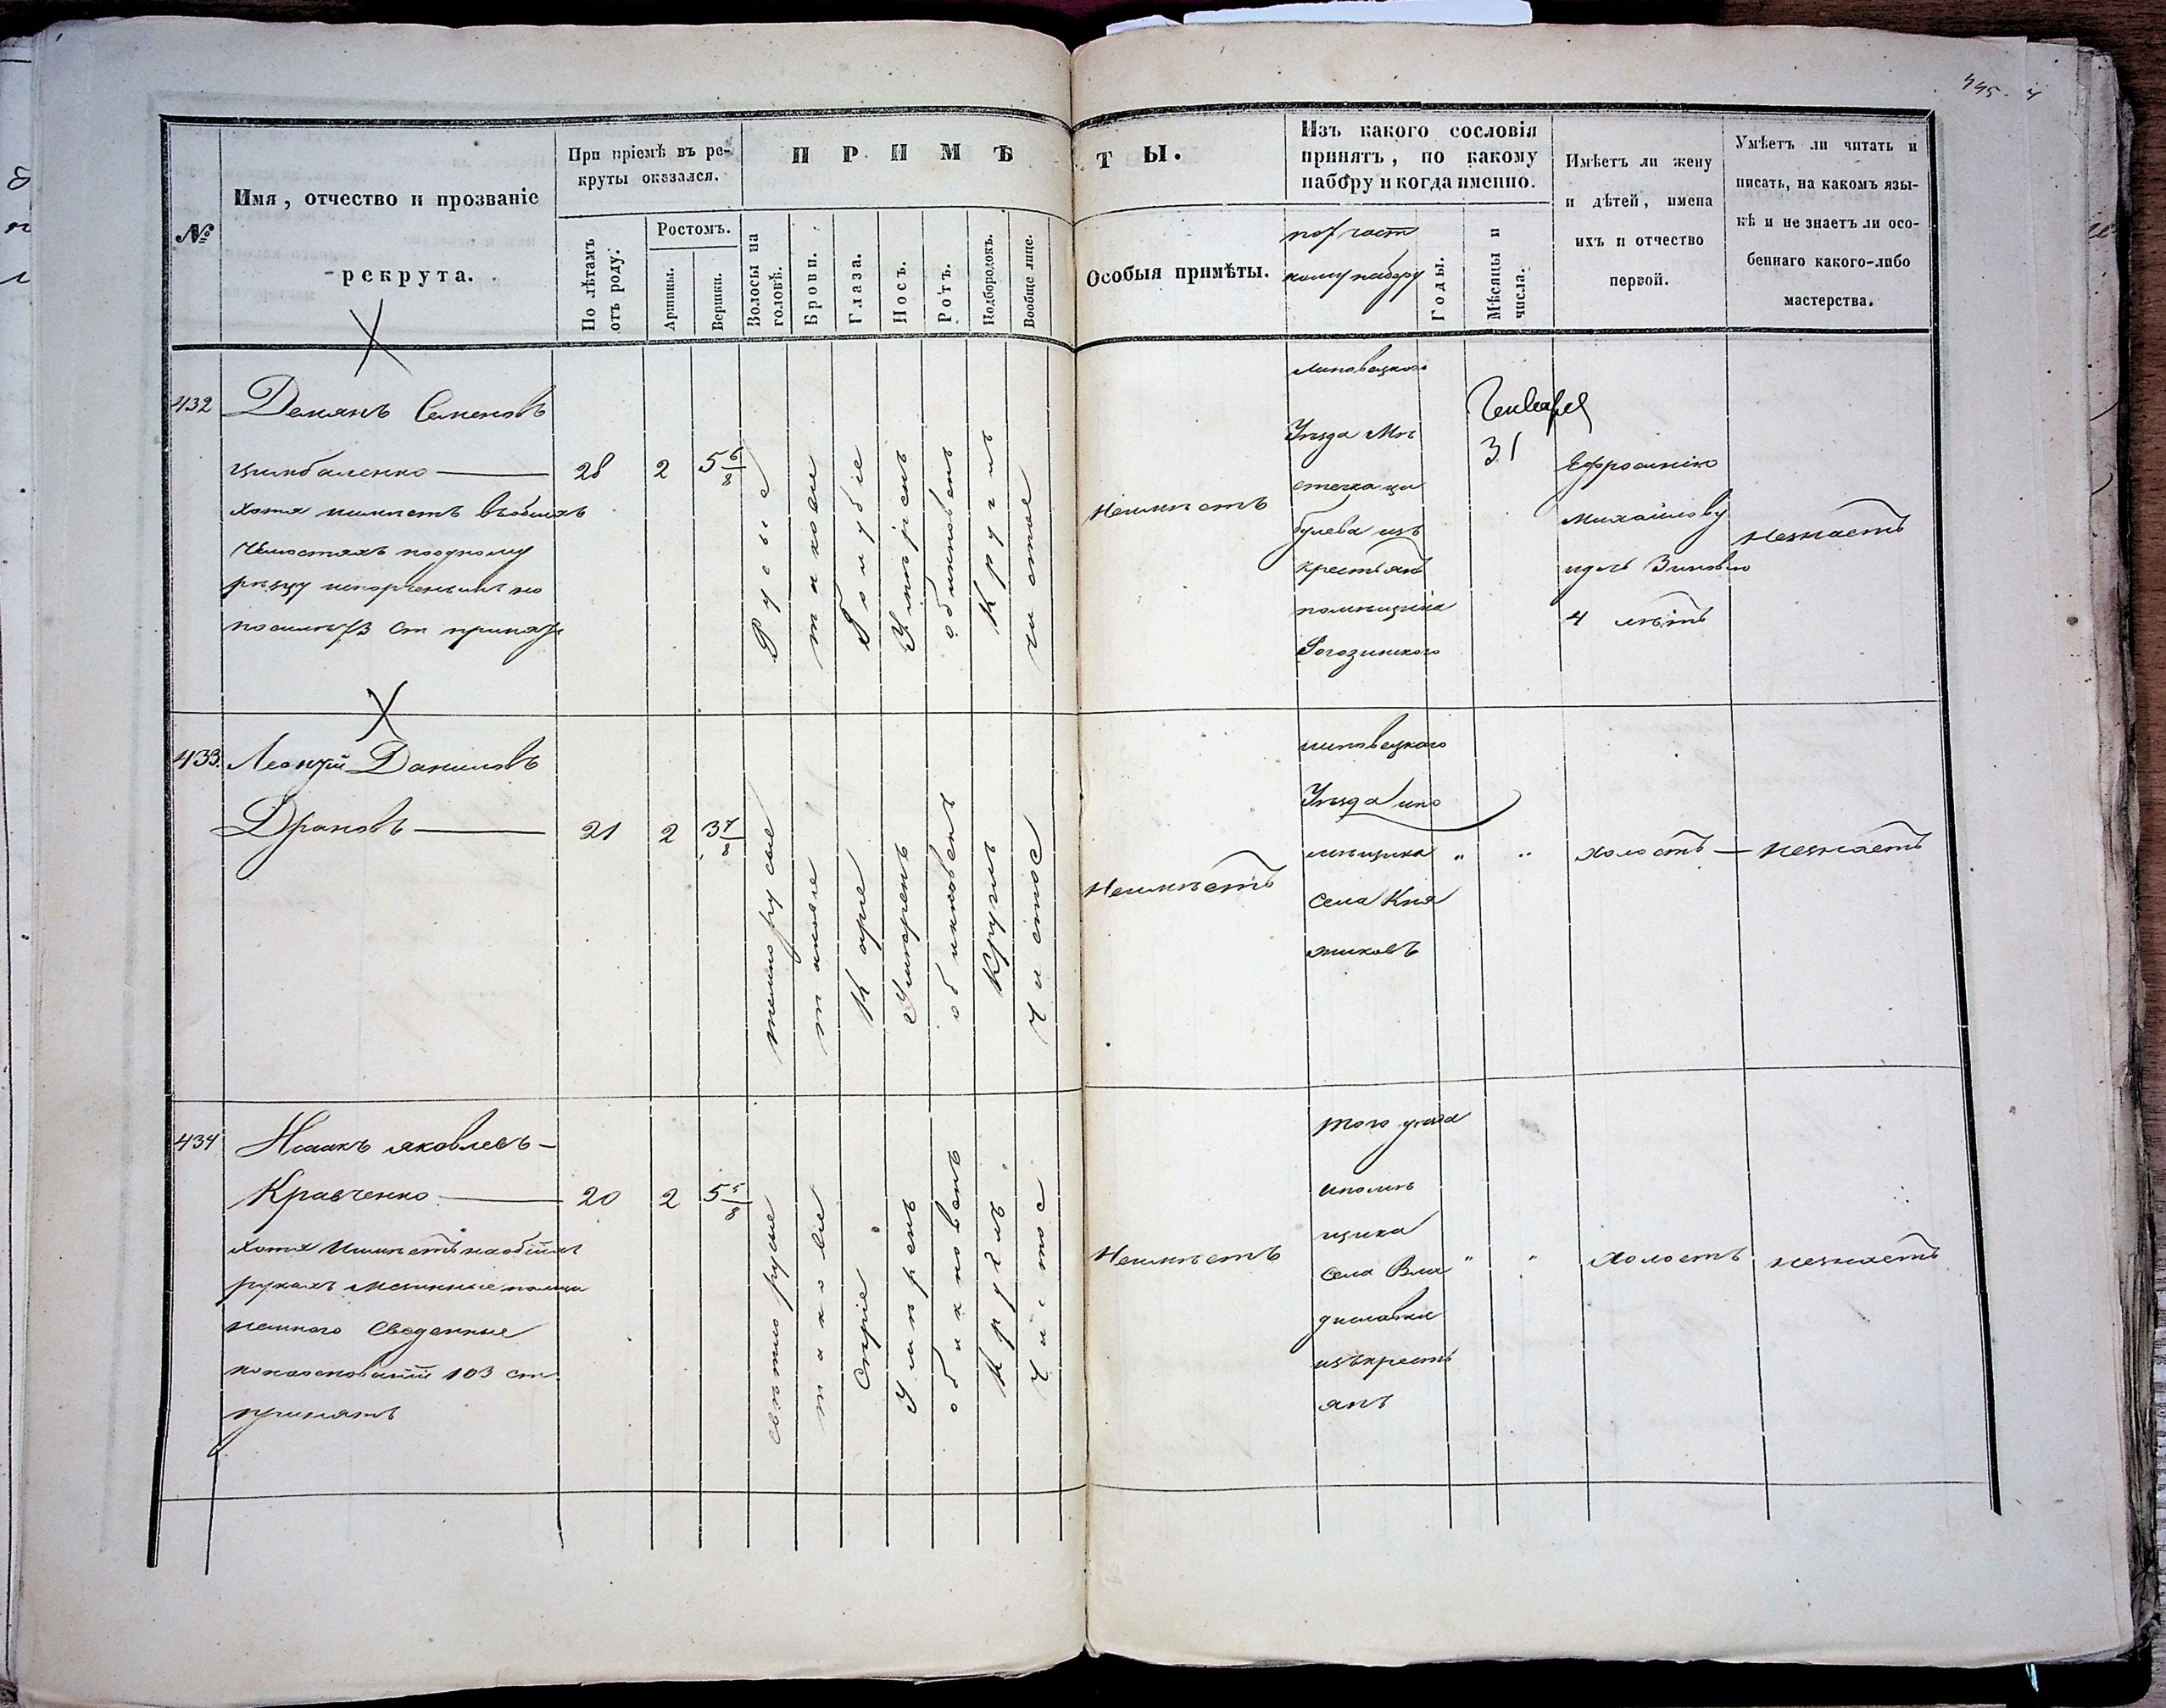 445.
№
Имя, отчество и прозваніе
рекрута.
При пріемѣ въ ре-
круты оказался.
По лѣтамъ
отъ роду.
Ростомъ.
Аршины.
Вершки.
ПРИМѢТЫ.
Волосы на
головѣ.
Брови.
Глаза.
Носъ.
Ротъ.
Подбородокъ.
Вообще лице.
Особыя примѣты.
Изъ какого сословія
принятъ, по какому
набору и когда именно.
кому набору
Годы.
Мѣсяцы и
числа.
Имѣетъ ли жену
и дѣтей, имена
ихъ и отчество
первой.
Умѣетъ ли читать и
писать, на какомъ язы-
кѣ и не знаетъ ли осо-
беннаго какого-либо
мастерства.
432
Демянъ Семеновъ
Цимбаленко
хотя неимѣетъ въ обѣихъ
челюстяхъ поодному
рѣзцу
28
2
5 6/8
Русые
таковые
Голубые
Умѣренъ
обикновенъ
Круглъ
чистое
Неимѣетъ
Липовецкого
Уѣзда Мѣ
стечка Ци
булева изъ
крестьянъ
помѣщика
Рогозинского
Генваря
31
Ефросинію
Михайлову
Зиновію
4 лѣтъ
Незнаетъ
433.
Леонтій Даниловъ
Драновъ
21
2
3 7/8
темнорусые
таковые
Карие
Умѣренъ
обикновенъ
Круглъ
Чистое
Неимѣетъ
Липовецкого
Уѣзда ипо
мѣщика " "
села Кня
жиковъ
холостъ
Незнаетъ
434
Исаакъ Яковлевъ
Кравченко
хотя Имѣетъ наобѣихъ
рукахъ мезинные пальци
немного сведенные
но наоснованіи 103 ст
принятъ
20
2
5 5/8
свѣтло русые
таковые
Сѣрые
Умѣренъ
обикновенъ
Круглъ
Чистое
Неимѣетъ
того уѣзда
ипомѣ
щика
села Вла " "
диславки
изъ кресть
янъ
Холостъ
незнаетъ